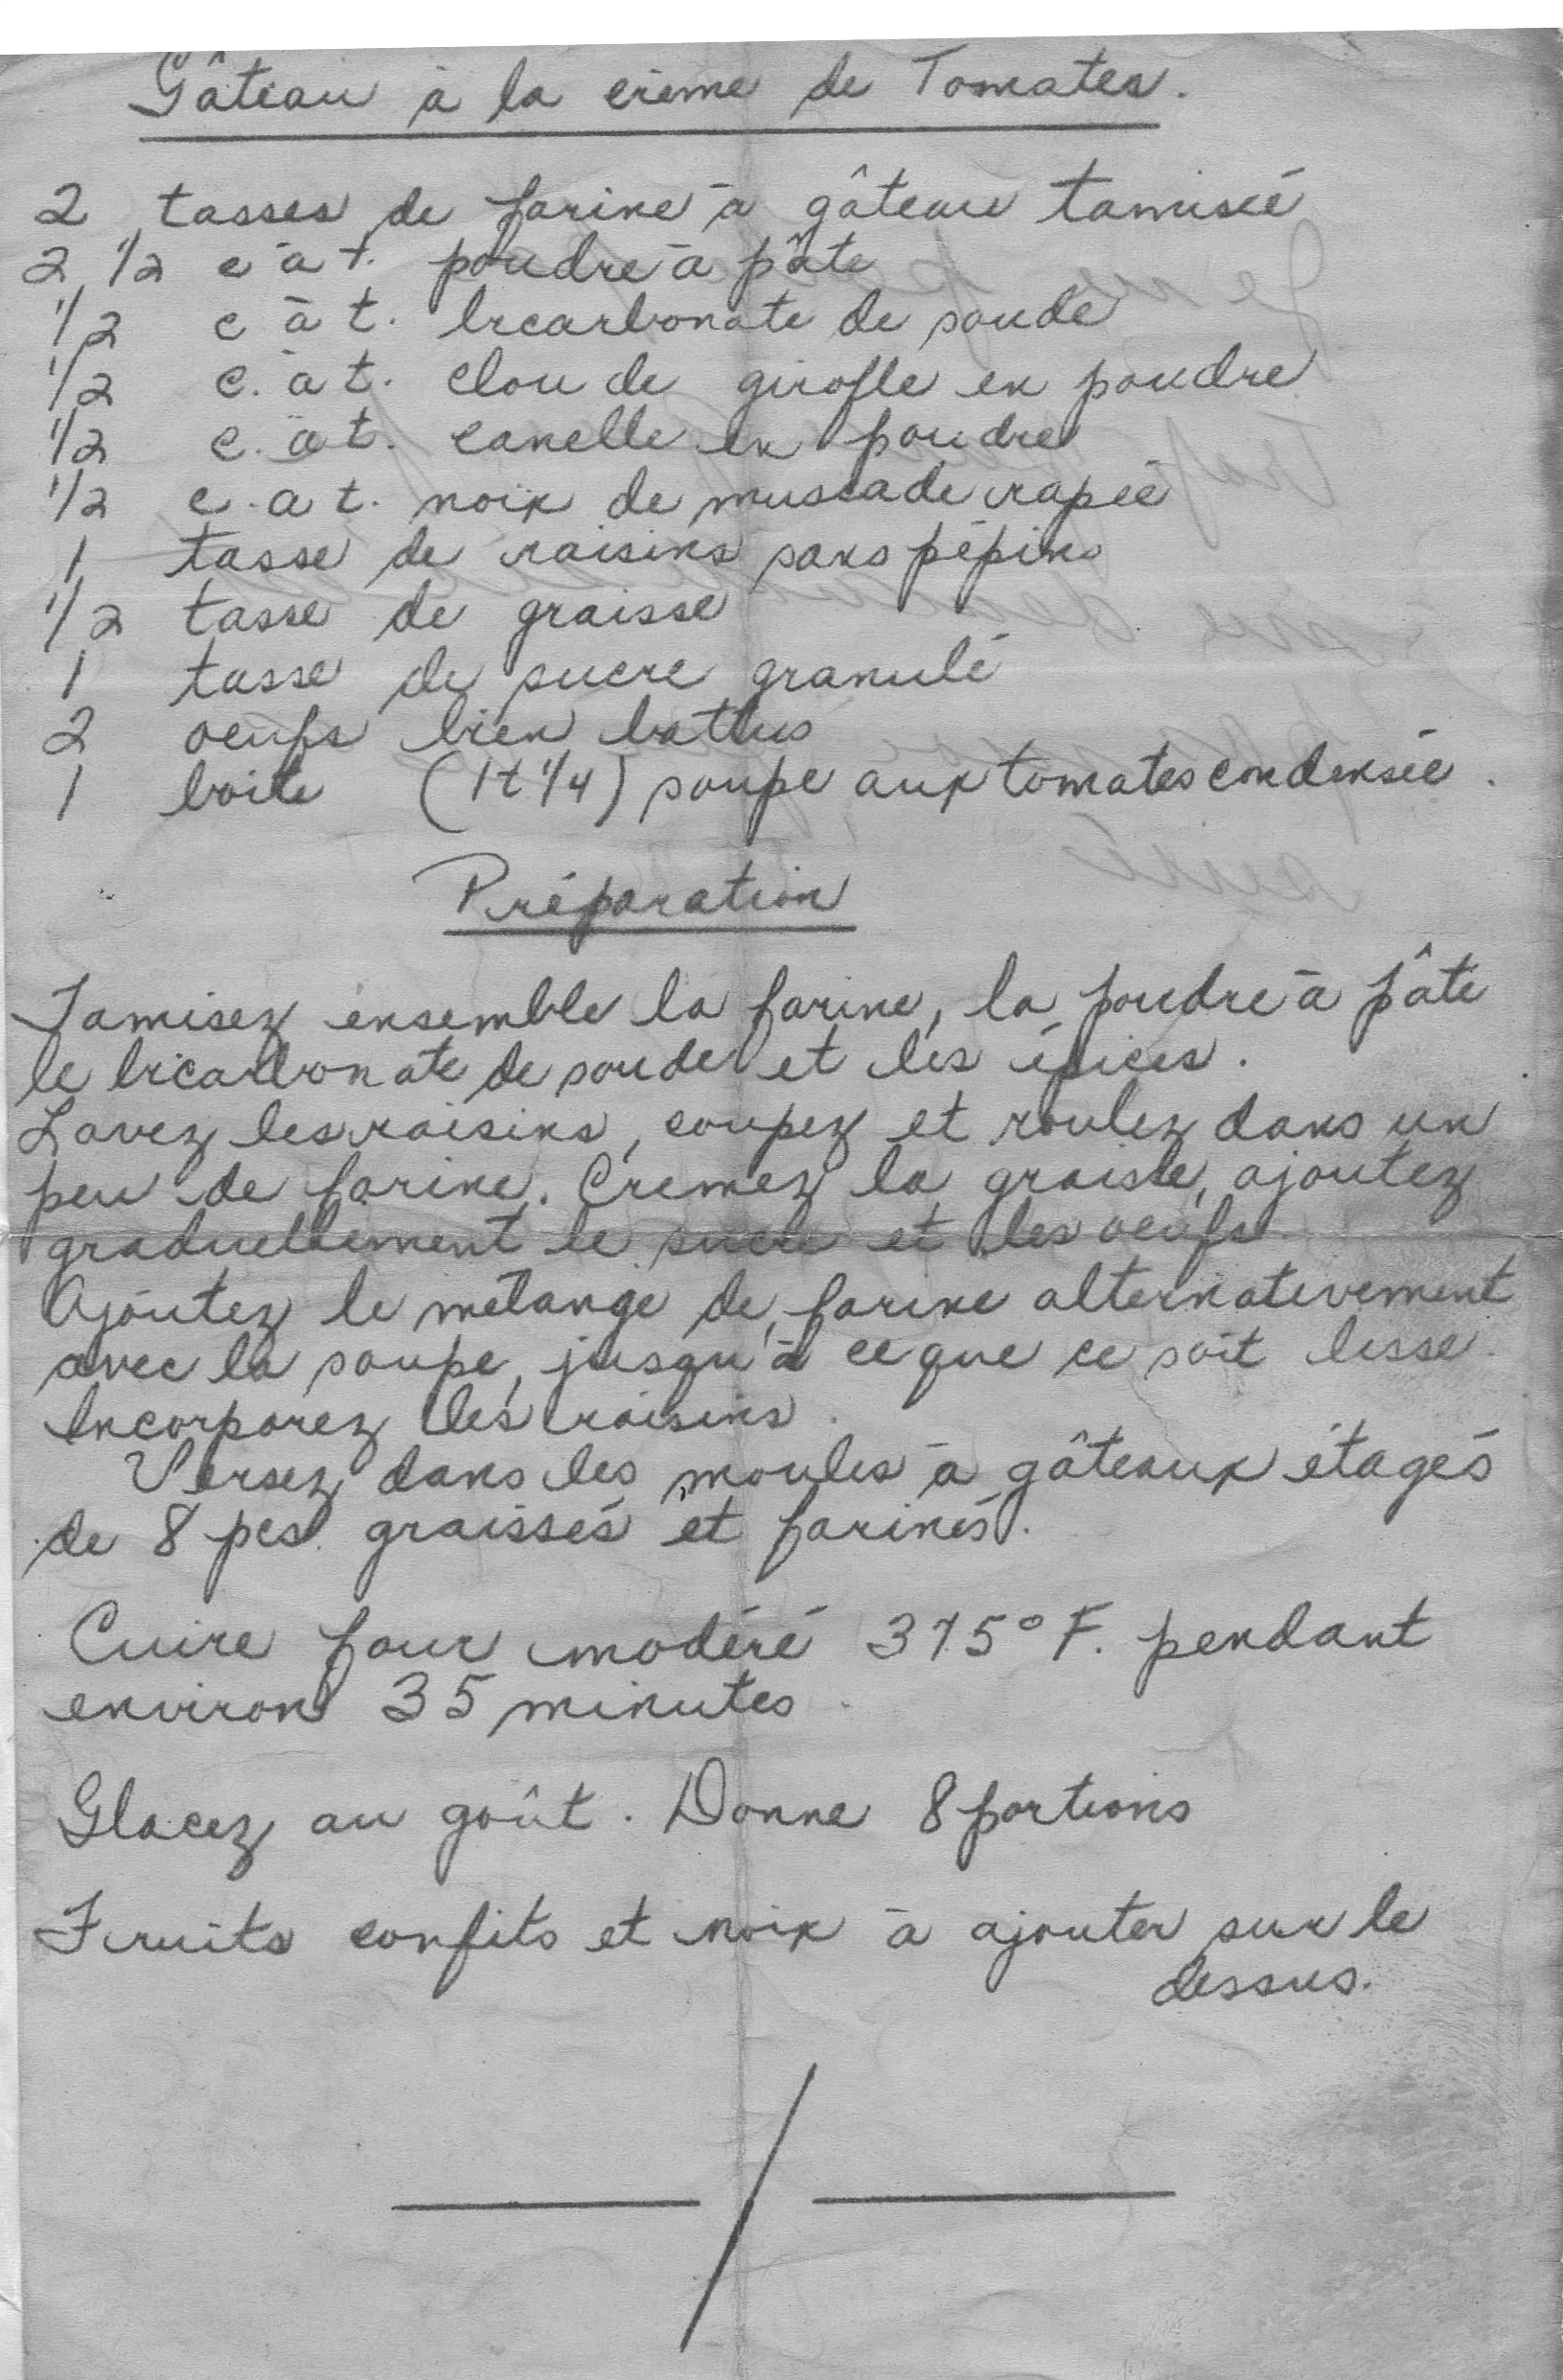 Gâteau à la crème de Tomates.
2 tasses de farine à gâteau tamisée
2 1/2 c à t. poudre à pâte
1/2 c à t. bicarbonate de soude
1/2 c. à t. clou de girofle en poudre
1/2 c. à t. canelle en poudre
1/2 c. a t. noix de muscade rapée
1 tasse de raisins sans pépins
1/2 tasse de graisse
1 tasse de sucre granulé
2 oeufs bien battus
1 boite (1t 1/4) soupe aux tomates condensée.
Préparation
Tamisez ensemble la farine, la poudre à pâte
le bicarbonate de soude et les épices.
Lavez les raisins, coupez et roulez dans un
peu de farine. Crémez la graisse, ajoutez
graduellement le sucre et les oeufs.
Ajoutez le mélange de farine alternativement
avec la soupe, jusqu'à ce que ce soit lisse.
Incorporez les raisins.
Versez dans les moules à gâteaux étagés
de 8 pcs. graissés et farinés.
Cuire four modéré 375° F. pendant
environ 35 minutes.
Glacez au goût. Donne 8 portions
Fruits confits et noix à ajouter sur le
dessus.